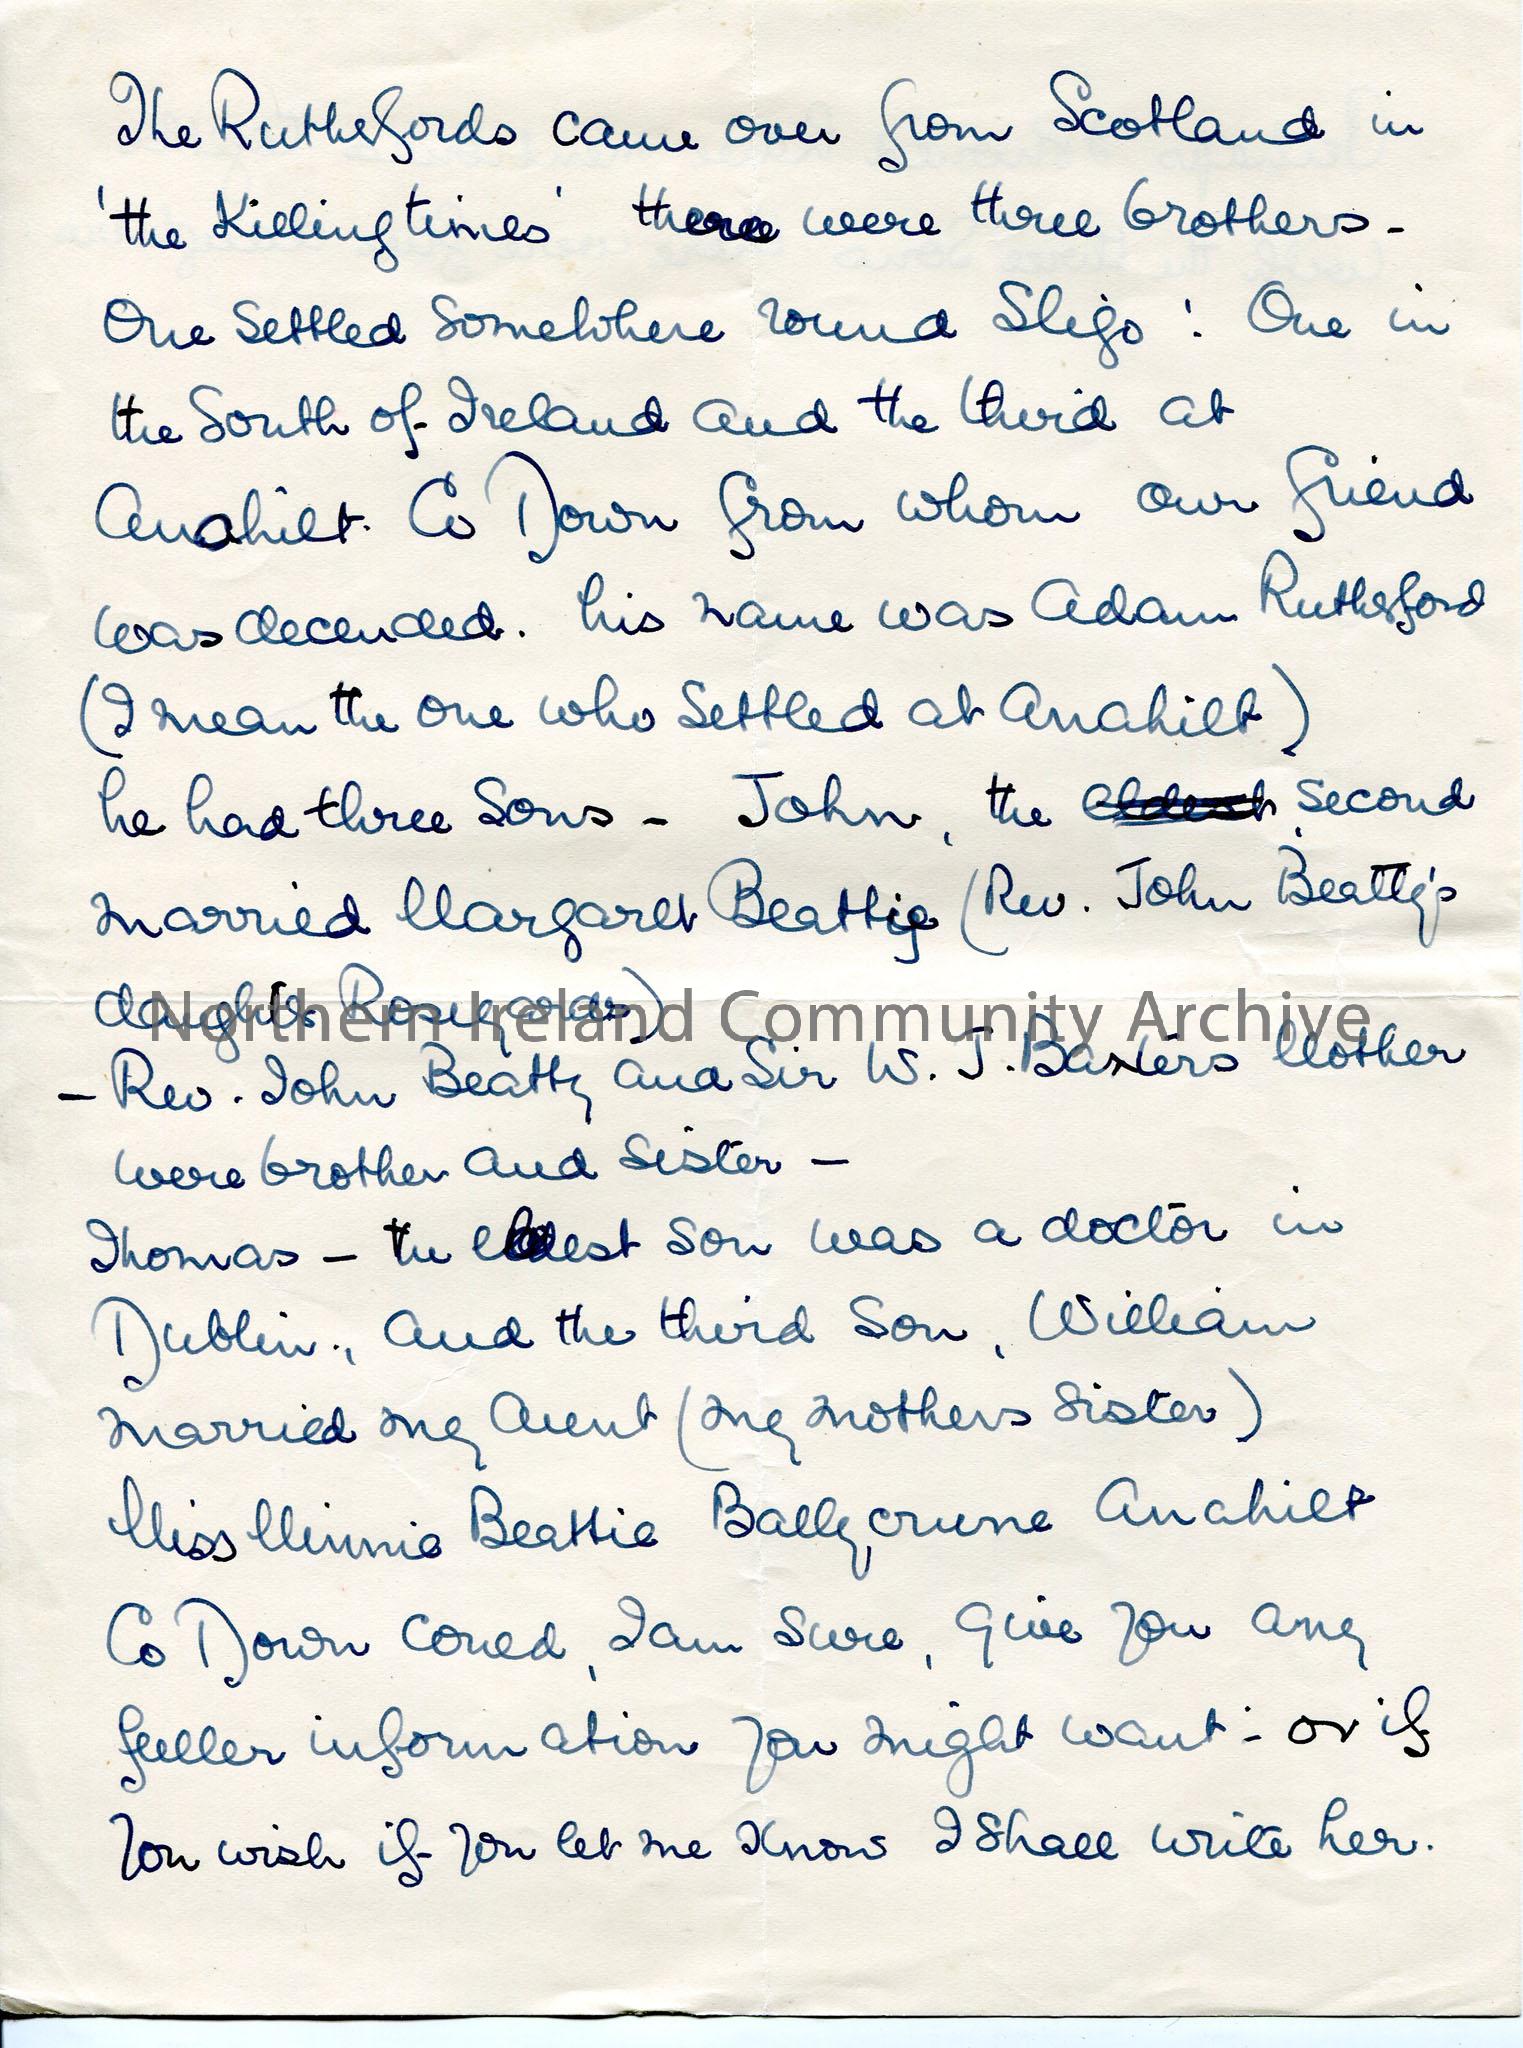 The Rutherfords came over from Scotland in
'the Killing times' there were three brothers -
One settled somewhere round Sligo : One in
the South of Ireland and the third at
Anahilt. Co Down from whom our friend
was decended. his name was Adam Rutherford
(I mean the one who settled at Anahilt)
he had three sons - John, the eldest, second
married Margaret Beattie (Rev. John Beatty's
daughter Roseyards)
Northern Ireland Community Archive
- Rev. John Beatty and Sir W. J. Baxters Mother
were brother and sister -
Thomas - the eldest son was a doctor in
Dublin., and the third son, William
married my Aunt (my mothers sister)
Miss Minnie Beattie Ballycrune Anahilt
Co Down could, I am sure, give you any
fuller information you might want - or if
you wish if you let me know I shall write her.